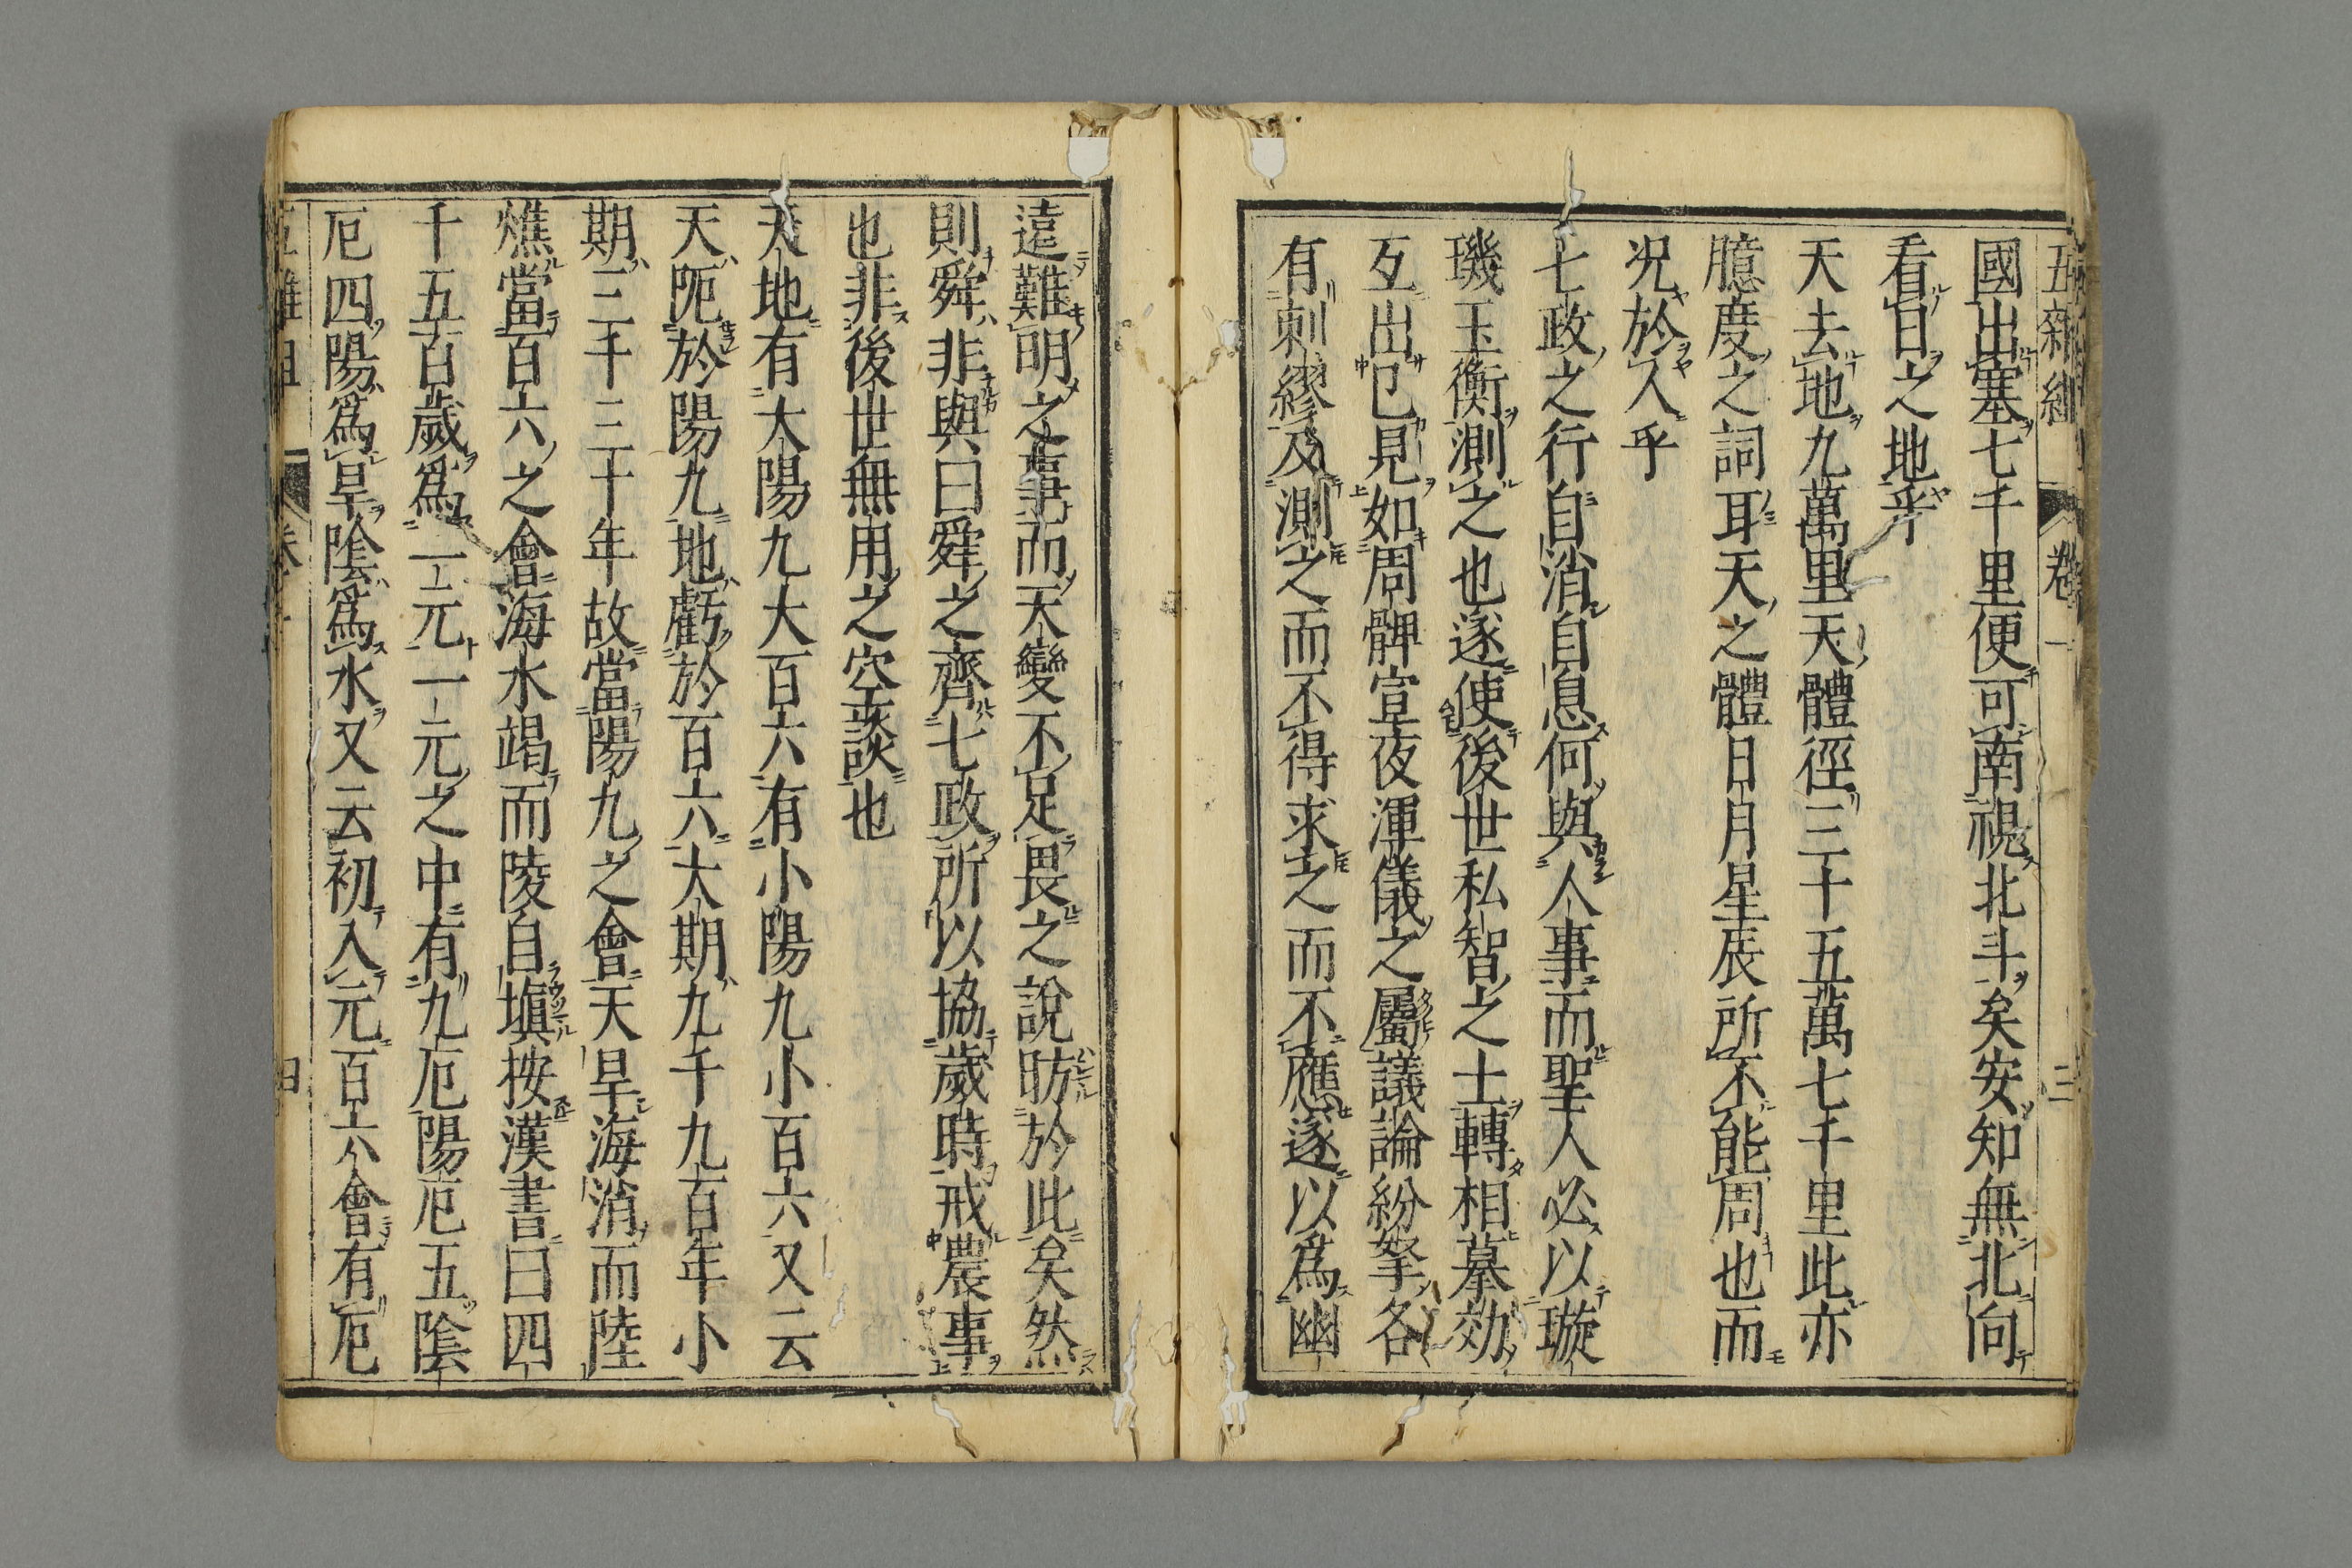 五雜組 卷一 三
國出塞七千里便可南視北斗矣安知無北向
看日之地乎
天去地九萬里天體徑三十五萬七千里此亦
臆度之詞耳天之體日月星辰所不能周也而
况於人乎
七政之行自消自息何與人事而聖人必以璇
璣玉衡測之也逐使後世私智之士轉相摹効
互出已見如周髀宣夜渾儀之屬議論紛拏各
有刺繆及測之而不得求之而不應遂以爲幽
遠難明之事而天變不足畏之說昉於此矣然
則舜非與曰舜之齊七政所以協歲時戒農事
也非後世無用之空談也
天地有大陽九大百六有小陽九小百六又云
天阨於陽九地虧於百六大期九千九百年小
期三千三十年故當陽九之會天旱海消而陸
燋當百六之會海水竭而陵自塡按漢書曰四
千五百歲爲一元一元之中有九厄陽厄五陰
厄四陽爲旱陰爲水又云初入元百六會有厄